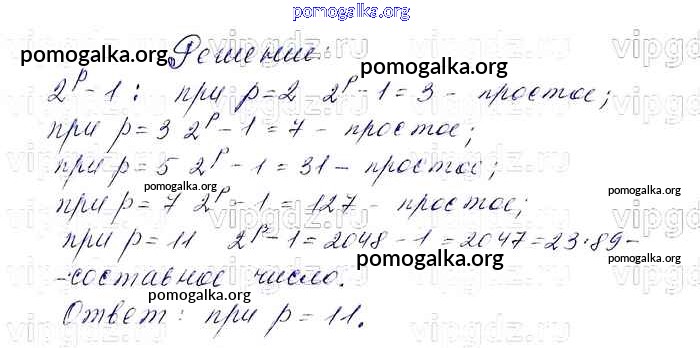 pomogalka.org
Решение:
pomogalka.org pomogalka.org
2^p - 1 : при p = 2 2^p - 1 = 3 - простое;
при p = 3 2^p - 1 = 7 - простое;
при p = 5 2^p - 1 = 31 - простое;
pomogalka.org pomogalka.org
при p = 7 2^p - 1 = 127 - простое;
при p = 11 2^p - 1 = 2048 - 1 = 2047 = 23·89 -
pomogalka.org
- составное число.
pomogalka.org
Ответ: при p = 11.
vipgdz.ru